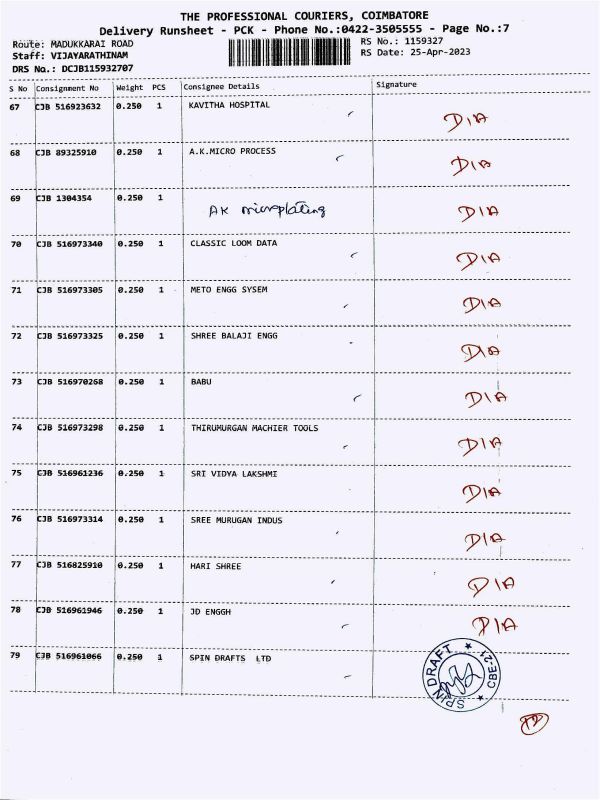 THE PROFESSIONAL COURIERS, COIMBATORE
Delivery Runsheet - PCK - Phone No.:0422-3505555 - Page No.:7
Route: MADUKKARAI ROAD
RS No.: 1159327
Staff: VIJAYARATHINAM
RS Date: 25-Apr-2023
DRS No.: DCJB115932707
S No Consignment No Weight PCS Consignee Details Signature
67 CJB 516923632 0.250 1 KAVITHA HOSPITAL D/A
68 CJB 89325910 0.250 1 A.K.MICRO PROCESS D/A
69 CJB 1304354 0.250 1 AK microplating D/A
70 CJB 516973340 0.250 1 CLASSIC LOOM DATA D/A
71 CJB 516973305 0.250 1 METO ENGG SYSEM D/A
72 CJB 516973325 0.250 1 SHREE BALAJI ENGG D/A
73 CJB 516970268 0.250 1 BABU D/A
74 CJB 516973298 0.250 1 THIRUMURGAN MACHIER TOOLS D/A
75 CJB 516961236 0.250 1 SRI VIDYA LAKSHMI D/A
76 CJB 516973314 0.250 1 SREE MURUGAN INDUS D/A
77 CJB 516825910 0.250 1 HARI SHREE D/A
78 CJB 516961946 0.250 1 JD ENGGH D/A
79 CJB 516961066 0.250 1 SPIN DRAFTS LTD
SPIN DRAFT ★ CBE-21 ★